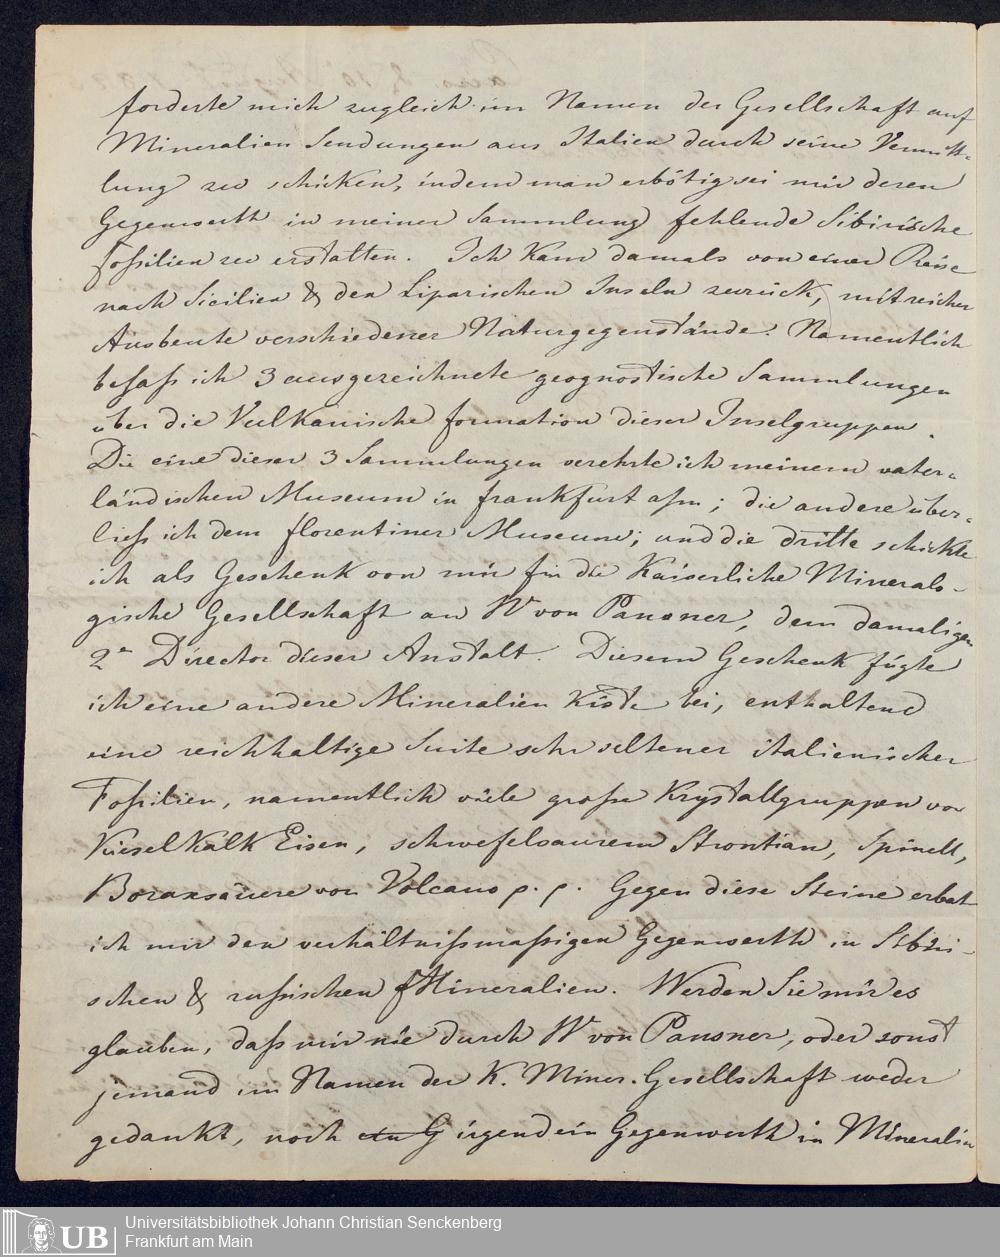 forderte mich zugleich im Namen der Gesellschaft auf
Mineralien Sendungen aus Italien durch seine Vermitt-
lung zu schicken, indem man erbötig sei mir deren
Gegenwerth in meiner Sammlung fehlende Sibirische
Foßilien zu erstatten. Ich kam damals von einer Reise
nach Sicilien & den Liparischen Inseln zurück, mit reicher
Ausbeute verschiedener Naturgegenstände. Namentlich
besaß ich 3 ausgezeichnete geognostische Sammlungen
über die Vulkanische formation dieser Inselgruppen.
Die eine dieser 3 Sammlungen verehrte ich meinem vater-
ländischen Museum in Frankfurt a/m; die andere über-
ließ ich dem florentiner Museum; und die dritte schickte
ich als Geschenk von mir für die Kaiserliche Mineralo-
gische Gesellschaft an Hr von Pansner, dem damaligen
2n Director dieser Anstalt. Diesem Geschenk fügte
ich eine andere Mineralien Kiste bei, enthaltend
eine reichhaltige Suite sehr seltener italienischer
Foßilien, namentlich viele große Krystallgruppen von
Kieselkalk Eisen, schwefelsaurem Strontian, Spinell,
Boraxsäure von Volcano p. p. Gegen diese Steine erbat
ich mir den verhältnißmaßigen Gegenwerth in Sibiri-
schen & rußischen Mineralien. Werden Sie mir es
glauben, daß mir nie durch Hr von Pansner, oder sonst
jemand im Namen der K. Miner. Gesellschaft weder
gedankt, noch ein G irgend ein Gegenwerth in Mineralien
UB
Universitätsbibliothek Johann Christian Senckenberg
Frankfurt am Main